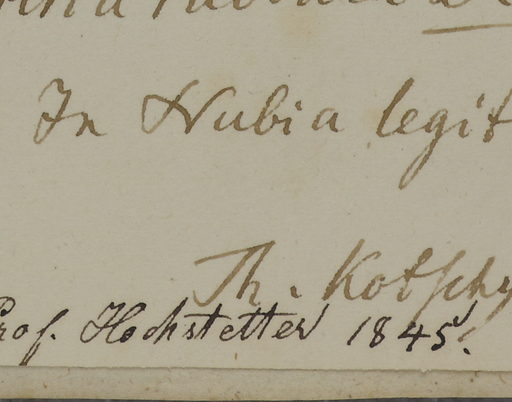 In Nubia legit
Th. Kotschy
Prof. Hochstetter 1845.